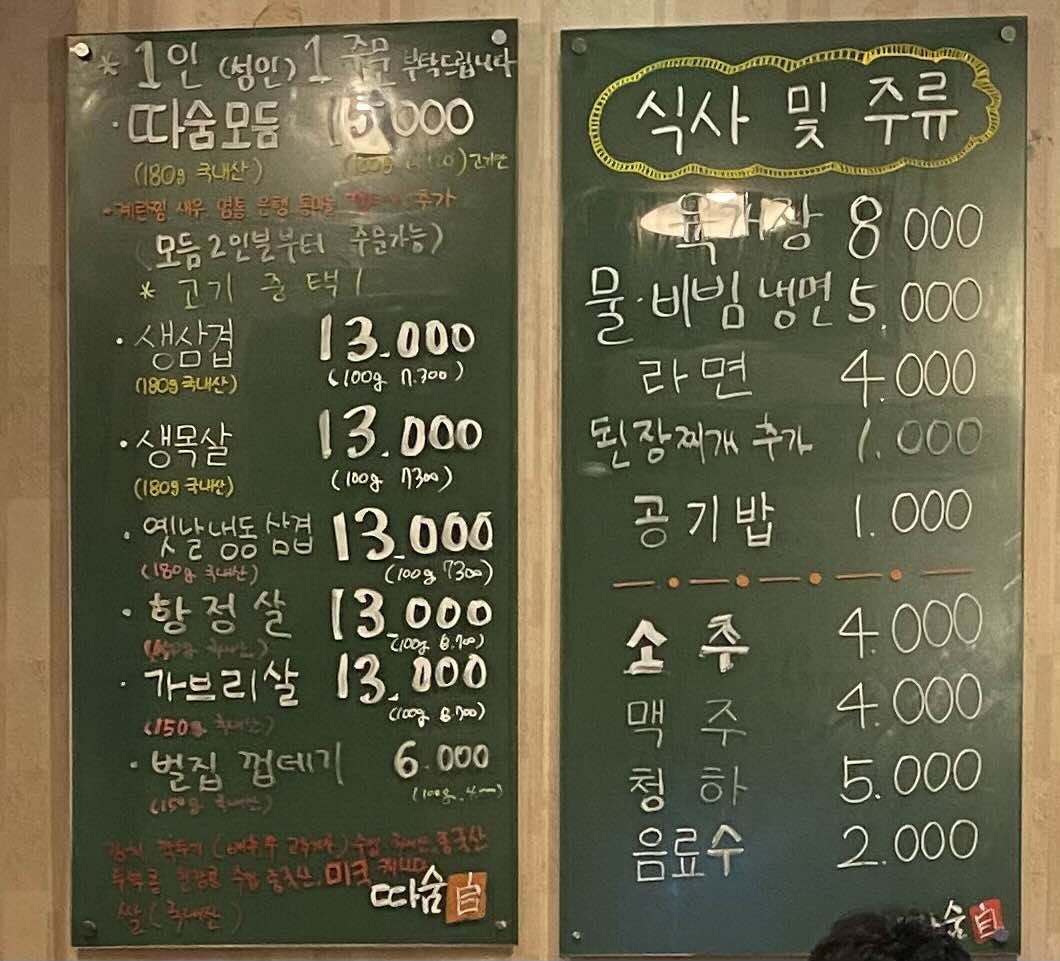 * 1인 (성인) 1 주문 부탁드립니다
· 따숨모듬 15,000
(180g 국내산) 고기만
· 계란찜 새우 염통 은행 통마늘 추가
(모듬 2인분부터 주문가능)
* 고기 중 택 1
· 생삼겹 13.000
(180g 국내산) (100g 7.300)
· 생목살 13.000
(180g 국내산) (100g 7300)
· 옛날냉동삼겹 13.000
(180g 국내산) (100g 7300)
· 항정살 13.000
국내산) (100g 8.700)
· 가브리살 13.000
(150g 국내산) (100g 8700)
· 벌집 껍데기 6.000
(150g 국내산) (100g. 4.000)
김치 깍두기 (배추 무 고추가루) 수입 중국산
수입 중국산. 미국 캐나다
쌀 (국내산)
따숨 自
식사 및 주류
육개장 8 000
물·비빔 냉면 5.000
라면 4.000
된장찌개 추가 1.000
공기밥 1.000
소주 4.000
맥주 4.000
청하 5.000
음료수 2.000
숨 自